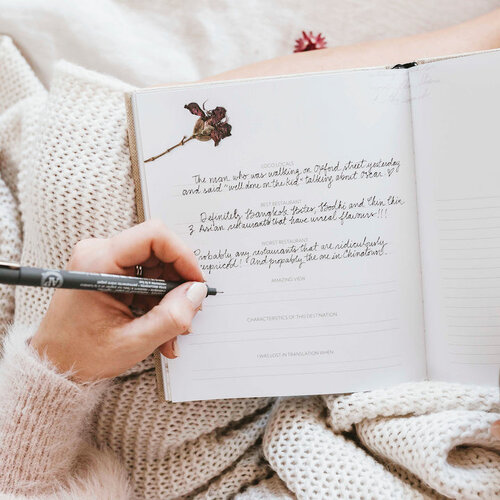 GOOD LOCALS
The man who was walking on Oxford street yesterday
and said "well done on the kid" talking about Oscar ♡
BEST RESTAURANT
Definitely Bangkok Bites, Bodhi and Chin Chin
3 Asian restaurants that have unreal flavours!!!
WORST RESTAURANT
Probably any restaurants that are ridiculously
overpriced! And propably the one in Chinatown.
AMAZING VIEW
CHARACTERISTICS OF THIS DESTINATION
I WAS LOST IN TRANSLATION WHEN